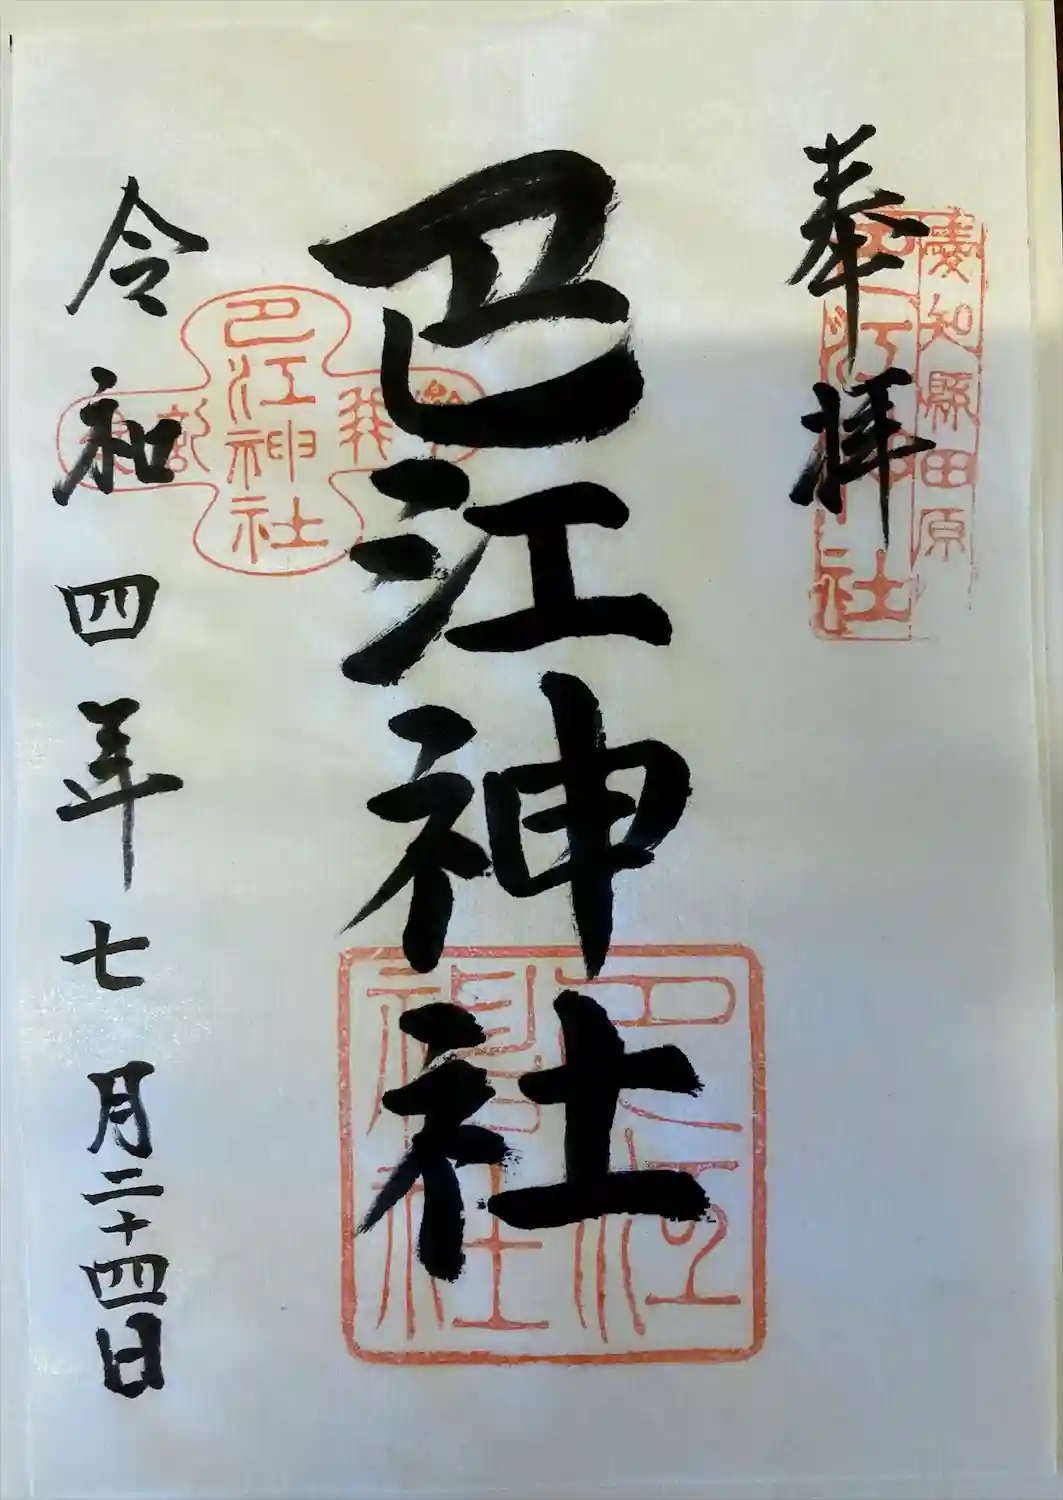 愛知縣田原
巴江神社
奉拝
巴江神社
巴江神社
巴江神社
令和四年七月二十四日